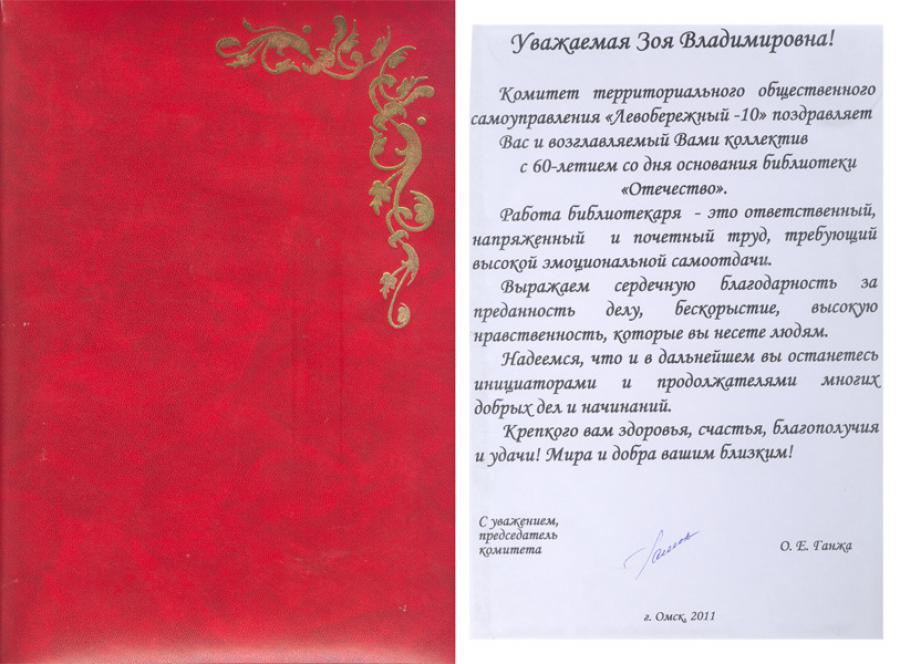 Уважаемая Зоя Владимировна!
Комитет территориального общественного
самоуправления «Левобережный -10» поздравляет
Вас и возглавляемый Вами коллектив
с 60-летием со дня основания библиотеки
«Отечество».
Работа библиотекаря - это ответственный,
напряженный и почетный труд, требующий
высокой эмоциональной самоотдачи.
Выражаем сердечную благодарность за
преданность делу, бескорыстие, высокую
нравственность, которые вы несете людям.
Надеемся, что и в дальнейшем вы останетесь
инициаторами и продолжателями многих
добрых дел и начинаний.
Крепкого вам здоровья, счастья, благополучия
и удачи! Мира и добра вашим близким!
С уважением,
председатель
комитета
О. Е. Ганжа
г. Омск, 2011